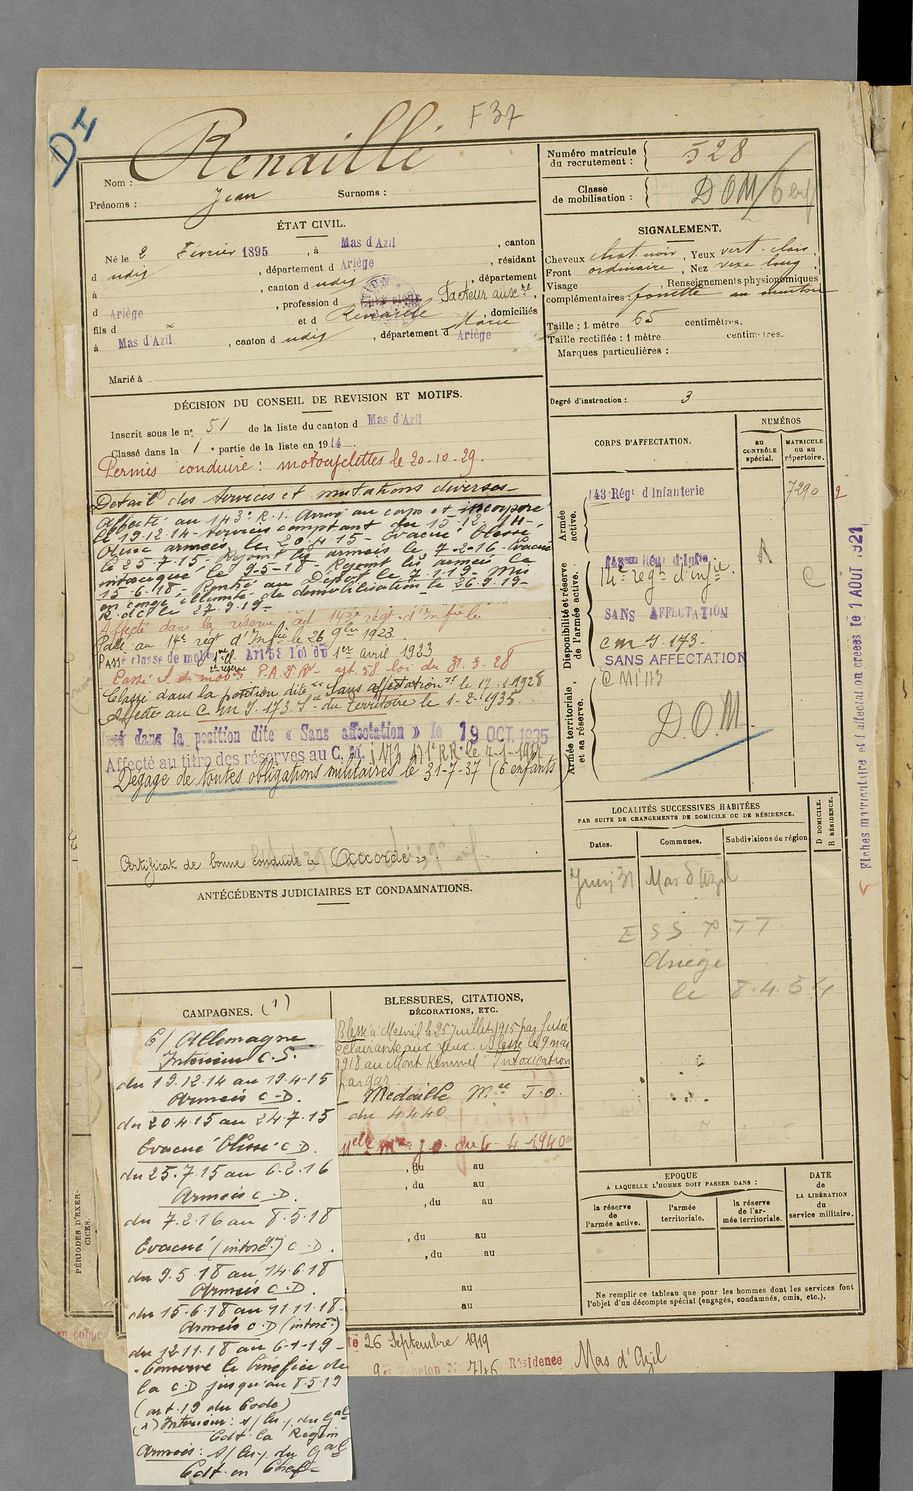 DI
F 37
Nom : Renaillé
Prénoms : Jean Surnoms :
Numéro matricule du recrutement : 528
Classe de mobilisation : DOM / 6 enf
ÉTAT CIVIL.
Né le 2 Février 1895, à Mas d'Azil, canton
d udis, département d Ariège, résidant
à , canton d udis, département
d Ariège, profession d Facteur auxre,
fils d × et d Renaillé Marie, domiciliés
à Mas d'Azil, canton d udis, département d Ariège
Marié à
SIGNALEMENT.
Cheveux chat noir, Yeux vert clair,
Front ordinaire, Nez vexe long,
Visage , Renseignements physionomiques
complémentaires : fossette au menton
Taille : 1 mètre 65 centimètres.
Taille rectifiée : 1 mètre centimètres.
Marques particulières :
Degré d'instruction : 3
DÉCISION DU CONSEIL DE REVISION ET MOTIFS.
Inscrit sous le no 51 de la liste du canton d Mas d'Azil
Classé dans la 1e partie de la liste en 1914.
Permis conduire : motocyclettes le 20-10-29.
Détail des services et mutations diverses
Affecté au 143e R.I. Arrivé au corps et incorporé
le 19.12.14. Services comptant du 15.12.14.
Passé armées le 20.4.15 - Evacué blessé
le 25.7.15. Rejoint les armées le 7.2.16. Evacué
intoxiqué le 9.5.18. Rejoint les armées le
15.6.18. Rentré au Dépôt le 7.1.19. Mis
en congé illimité de démobilisation le 26.9.19.
Affecté dans la réserve au 143e régt d'Infrie
Passé au 14e régt d'Infie le 26 9bre 1923
Passé classe de mobon Art 58 Loi du 1er avril 1923
Passé cl de mobon P.A.D.R. art. 58 loi du 31.3.28
Classé dans la position dite "Sans affectation" le 17.1.1928
Affecté au C.M.I. 173. Sn du territoire le 1-2-1935.
est dans la position dite « Sans affectation » le 19 OCT. 1935
Affecté au titre des réserves au C.M. I 173
Dégagé de toutes obligations militaires le 31-7-37 (6 enfants)
Certificat de bonne conduite « Accordé »
ANTÉCÉDENTS JUDICIAIRES ET CONDAMNATIONS.
CORPS D'AFFECTATION.
NUMÉROS
au CONTRÔLE spécial.
MATRICULE ou au répertoire.
Armée active.
143 Régt d'Infanterie 7290
Disponibilité et réserve de l'armée active.
14e régt d'infie.
SANS AFFECTATION
C M I. 173 -
SANS AFFECTATION
Armée territoriale, et sa réserve.
C M I 173
D.O.M.
LOCALITÉS SUCCESSIVES HABITÉES
PAR SUITE DE CHANGEMENTS DE DOMICILE OU DE RÉSIDENCE.
Dates. Communes. Subdivisions de région
D DOMICILE.
R RÉSIDENCE.
Juin 31 Mas d'Azil
E S S P T T
Ariège
le 8.4.54
Fiches matriculaire et d'affectation créées le 1 AOUT 1921
CAMPAGNES. (1)
C/ Allemagne
Intérieur C.S.
du 19.12.14 au 19.4.15
Armées C-D.
du 20.4.15 au 24.7.15
Evacué blessé C D.
du 25.7.15 au 6.2.16
Armées C-D.
du 7.2.16 au 8.5.18
Evacué (intoxé) C-D.
du 9.5.18 au 14.6.18
Armées C-D.
du 15.6.18 au 11.11.18-
Armées C-D (intoxé)
du 12.11.18 au 6-1-19-
- Conserve le bénéfice de
la C-D jusqu'au 8.5.19
(art. 19 du Code)
(1) Intérieur :
Cdt la Région
Armées :
Cdt en Chef -
BLESSURES, CITATIONS,
DÉCORATIONS, ETC.
Blessé à Mesnil le 25 Juillet 1915 par fusée
éclairante aux yeux. Blessé le 9 mai
1918 au Mont Kemmel Intoxication
par gaz
- Médaille Mre J.O.
du 4440
Melle Mre J.O. du 6-4-1940
, du au
, du au
, du au
, du au
, du au
au
au
EPOQUE
A LAQUELLE L'HOMME DOIT PASSER DANS :
la réserve de l'armée active.
l'armée territoriale.
la réserve de l'armée territoriale.
DATE de LA LIBÉRATION du service militaire.
Ne remplir ce tableau que pour les hommes dont les services font
l'objet d'un décompte spécial (engagés, condamnés, omis, etc.).
PÉRIODES D'EXERCICES.
26 Septembre 1919
746 Résidence Mas d'Azil